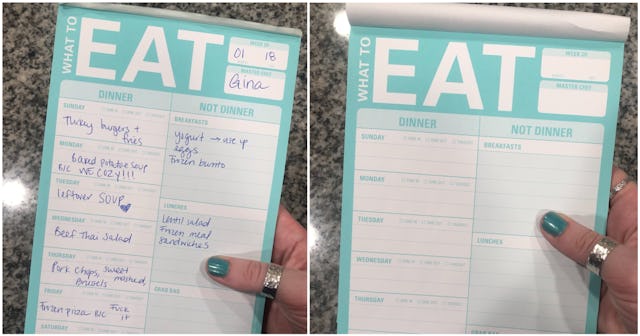 WHAT TO
EAT
WEEK OF
01 18
MASTER CHEF
Gina
DINNER
NOT DINNER
SUNDAY
Turkey burgers +
fries
MONDAY
baked potato soup
B/C WE COZY!!!
TUESDAY
leftover SOUP
WEDNESDAY
Beef Thai Salad
THURSDAY
Pork Chops, sweet
mashed,
Brussels
FRIDAY
Frozen pizza B/C FUCK
IT
SATURDAY
BREAKFASTS
Yogurt → use up
eggs
Frozen burrito
LUNCHES
Lentil salad
Frozen meal
sandwiches
GRAB BAG
WHAT TO
EAT
WEEK OF
MASTER CHEF
DINNER
NOT DINNER
SUNDAY
MONDAY
TUESDAY
WEDNESDAY
THURSDAY
BREAKFASTS
LUNCHES
GRAB BAG